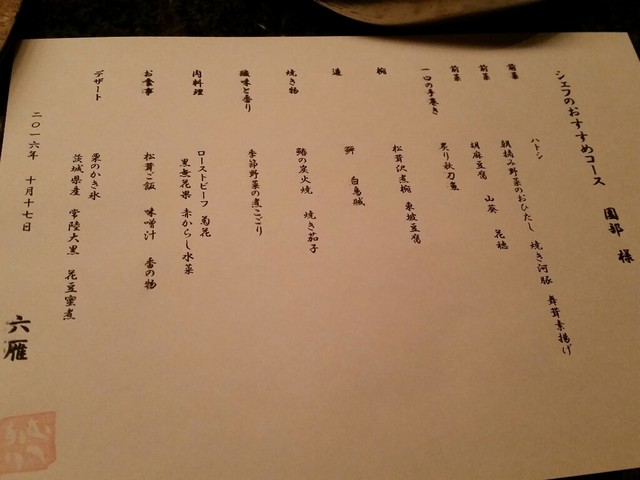 シェフのおすすめコース 園部 様
前菜 ハトシ 焼き河豚 舞茸素揚げ
前菜 朝摘み野菜のおひたし
前菜 胡麻豆腐 山葵 花穂
一口の手巻き 炙り秋刀魚
椀 松茸沢煮椀 東坡豆腐
造 鮃 白烏賊
焼き物 鰆の炭火焼 焼き茄子
酸味と香り 季節野菜の煮こごり
肉料理 ローストビーフ 菊花
黒無花果 赤からし水菜
お食事 松茸ご飯 味噌汁 香の物
デザート 栗のかき氷
茨城県産 常陸大黒 花豆蜜煮
二〇一六年 十月十七日
六雁